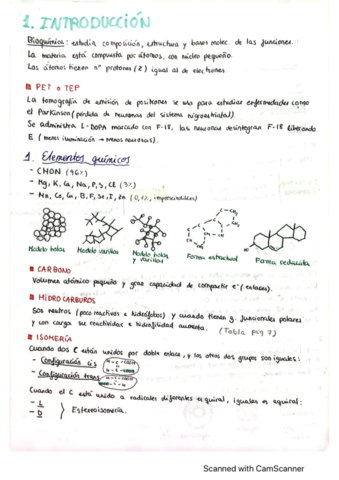 1. INTRODUCCIÓN
Bioquímica: estudia composición, estructura y bases molec. de las funciones...
La materia está compuesta por átomos, con núcleo pequeño.
Los átomos tienen nº protones (Z) igual al de electrones.
PET o TEP
La tomografía de emisión de positrones se usa para estudiar enfermedades como
el Parkinson (pérdida de neuronas del sistema nigroestriatal).
Se administra L-DOPA marcado con F-18, las neuronas desintegran F-18 liberando
E (menos iluminación → menos neuronas).
1. Elementos químicos
- CHON (96%)
- Mg, K, Ca, Na, P, S, Cl (3%)
- Mn, Co, Cu, B, F, Se, I, Zn (0,1%, imprescindibles)
Modelo bolas
Modelo varillas
Modelo bolas
y varillas
Forma estructural
Forma reducida
CARBONO
Volumen atómico pequeño y gran capacidad de compartir e⁻ (enlaces).
HIDROCARBUROS
Son neutros (poco reactivos e hidrófobos) y cuando tienen g. funcionales polares
y con carga su reactividad e hidrofilidad aumenta. (Tabla pag 7)
ISOMERÍA
Cuando dos C están unidos por doble enlace, y los otros dos grupos son iguales:
- Configuración cis
- Configuración trans
Cuando el C está unido a radicales diferentes es quiral, iguales es aquiral:
- L
- D
Estereoisomería.
Scanned with CamScanner